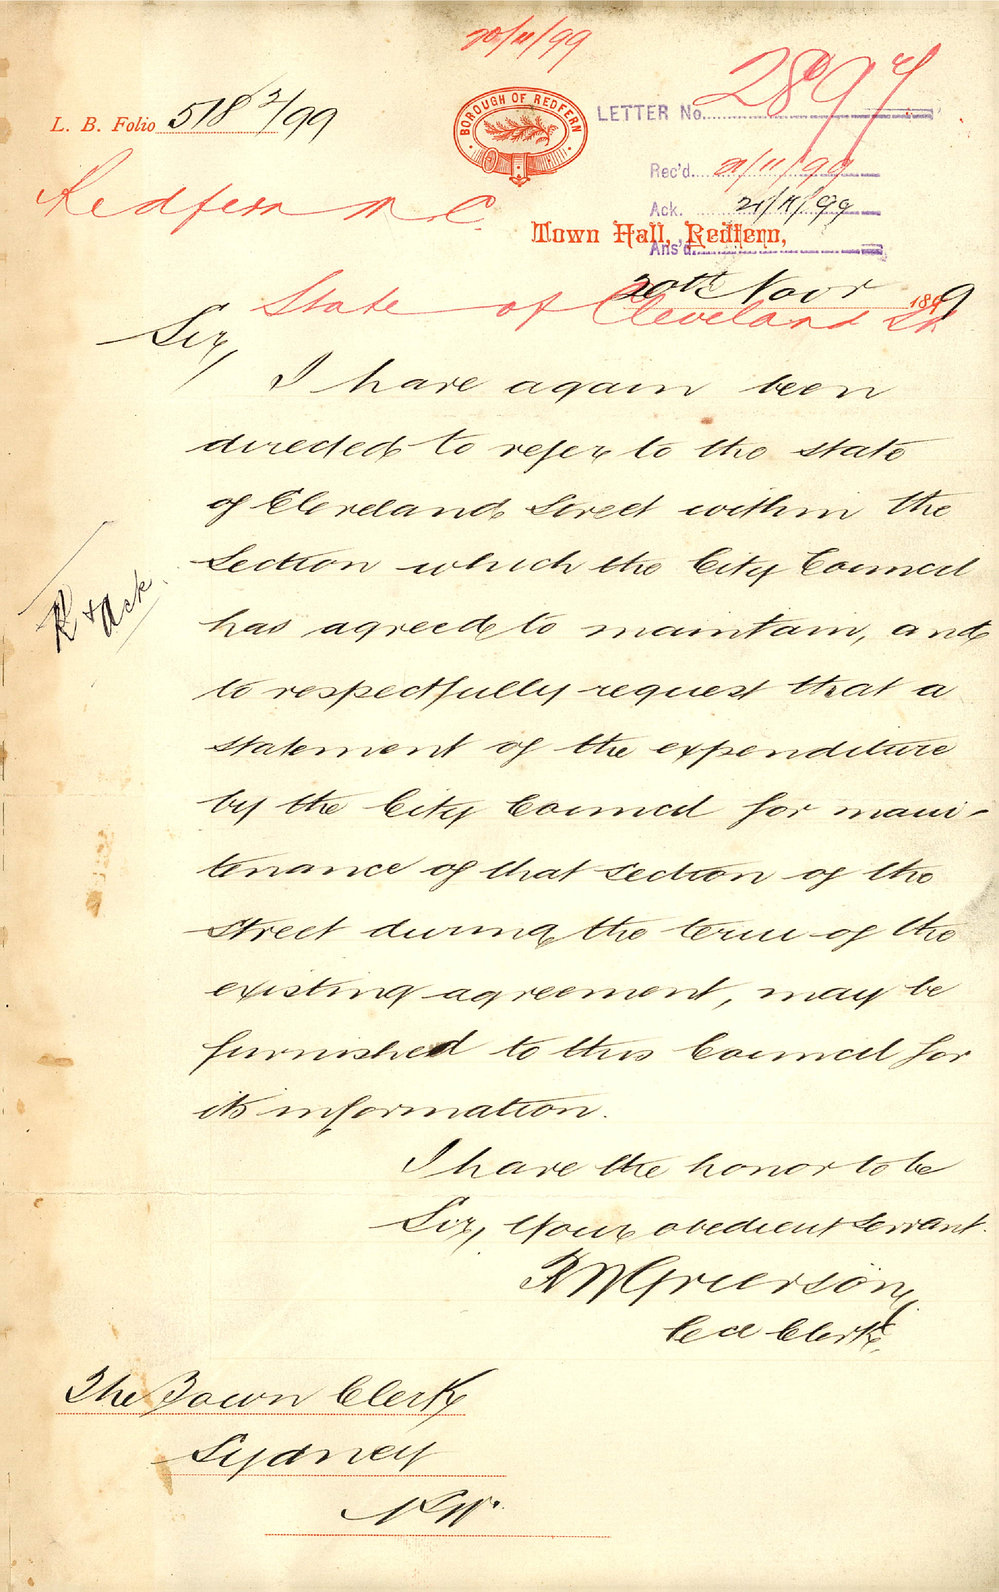 20/11/99
L. B. Folio 518 2/99
BOROUGH OF REDFERN
LETTER No. 2897
Rec'd. 21/11/99
Ack. 21/11/99
Ans'd.
Redfern M C.
Town Hall, Redfern,
20th Novr 1899
State of Cleveland St
Sir,
I have again been
directed to refer to the state
of Cleveland Street within the
Section which the City Council
has agreed to maintain, and
to respectfully request that a
statement of the expenditure
by the City Council for main-
tenance of that section of the
street during the term of the
existing agreement, may be
furnished to this Council for
its information.
R & Ack.
I have the honor to be
Sir, Your obedient Servant.
Grierson
Cl Clerk.
The Town Clerk
Sydney